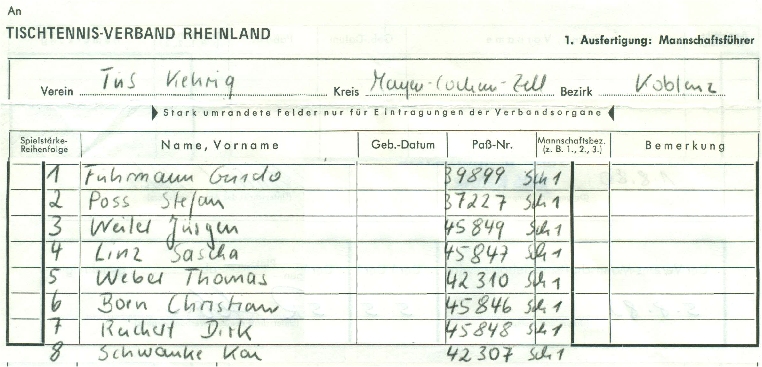 An
TISCHTENNIS-VERBAND RHEINLAND
1. Ausfertigung: Mannschaftsführer
Verein TuS Kehrig Kreis Mayen-Cochem-Zell Bezirk Koblenz
Stark umrandete Felder nur für Eintragungen der Verbandsorgane
Spielstärke-Reihenfolge Name, Vorname Geb.-Datum Paß-Nr. Mannschaftsbez. (z. B. 1., 2., 3.) Bemerkung
1 Fuhrmann Guido 39899 Sch1
2 Poss Stefan 37227 Sch1
3 Weiler Jürgen 45849 Sch1
4 Linz Sascha 45847 Sch1
5 Weber Thomas 42310 Sch1
6 Born Christian 45846 Sch1
7 Reichert Dirk 45848 Sch1
8 Schwanke Kai 42307 Sch1